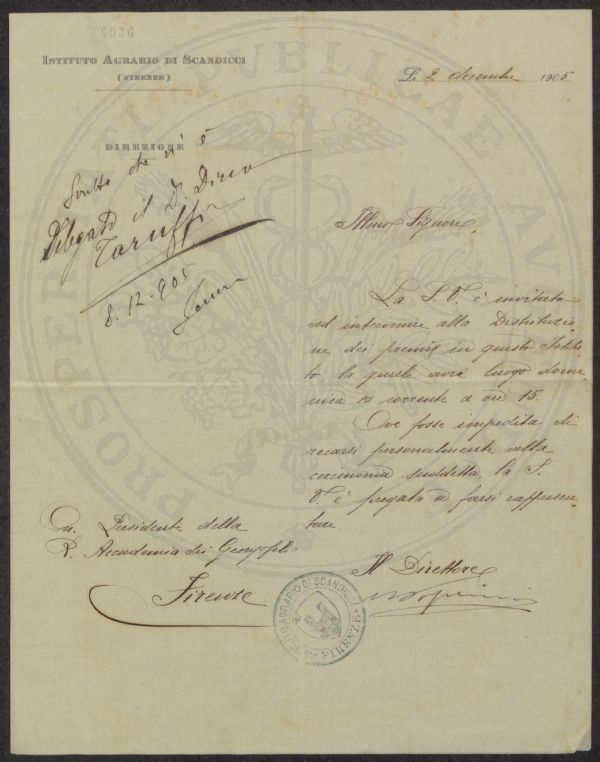 6936
ISTITUTO AGRARIO DI SCANDICCI
(FIRENZE)
DIREZIONE
Li 2 dicembre 1905
Scritto che vi è
Delegato il Dr.
Taruffi
8.12.905
Illmo Signore,
La S. V. è invitata
ad intervenire alla Distribuzio-
ne dei premii in questo Istitu-
to la quale avrà luogo dome-
nica 10 corrente a ore 15.
Ove fosse impedita di
recarsi personalmente alla
cerimonia suddetta, la S.
V. è pregata a farsi rappresen-
tare.
Presidente della
R. Accademia dei Georgofili.
Firenze
Il Direttore
AGRARIO DI SCANDICCI
FIRENZE
PROSPERITATI PUBLICAE AU